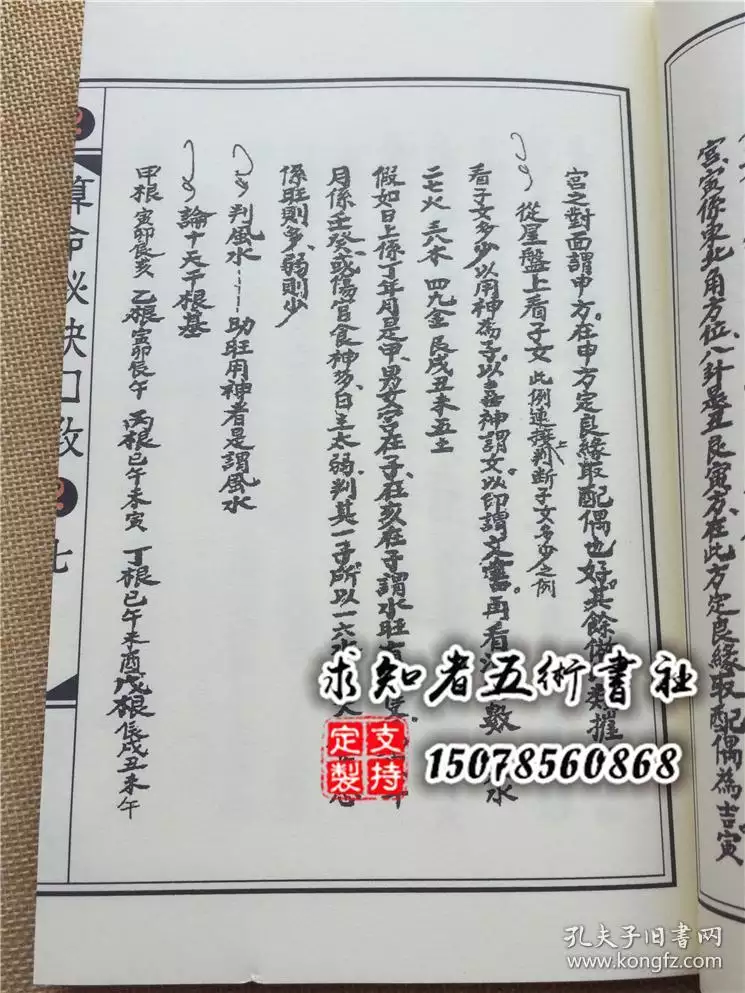 宫寅係東北角方位八卦是丑艮寅方在此方定良緣取配偶為吉寅
宫之對面謂申方。在申方定良緣取配偶也好。其餘
從星盤上看子女 此例連接上判断子女多少之例
看子女多少以用神為子。以喜神謂女以印謂文 再看 數 水
二七火 三八木 四九金 艮戌丑未五土
假如日上係丁年月是甲、男女宫在子、在亥在子謂水旺
月係壬癸、或傷官食神多、日主太弱。判其一子所以一六水
係旺則多、弱則少
判風水 助旺用神者是謂風水
論十天干根基
甲根 寅卯辰亥 乙根 寅卯辰午 丙根 巳午未寅 丁根 巳午未酉 戊根 辰戌丑未午
算命秘诀口教
七
求知者五術書社
支持定製
15078560868
孔夫子旧書网
www.kongfz.com